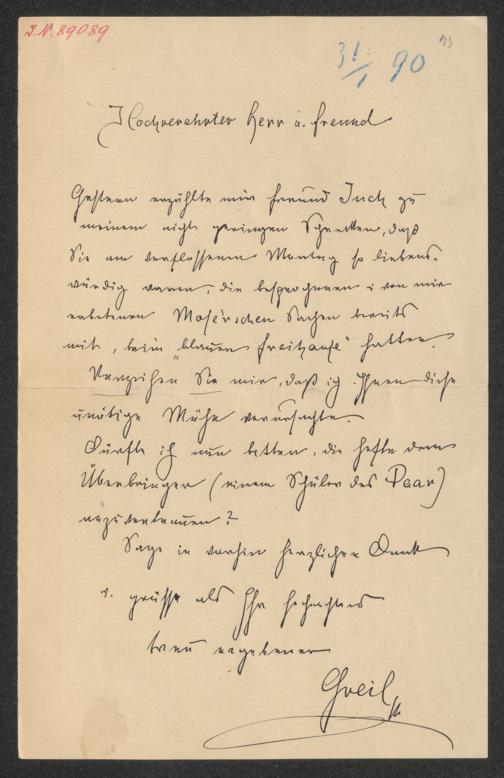 J.N. 89089
31/1 90
Hochverehrter Herr u. Freund
Gestern erzählte mir Freund Juch zu
meinem nicht geringen Schrecken, daß
Sie am verflossenen Montag so liebens-
würdig waren, die besprochenen u. von mir
erbetenen Moser'schen Sachen bereits
mit, beim „blauen Freihause" hatten.
Verzeihen Sie mir, daß ich Ihnen diese
unötige Mühe verursachte.
Dürfte ich nun bitten, die Hefte dem
Überbringer (einem Schüler des Paar)
anzuvertrauen?
Sage in vorhin herzlichen Dank
u. grüsse als Ihr
treu ergebener
Greil